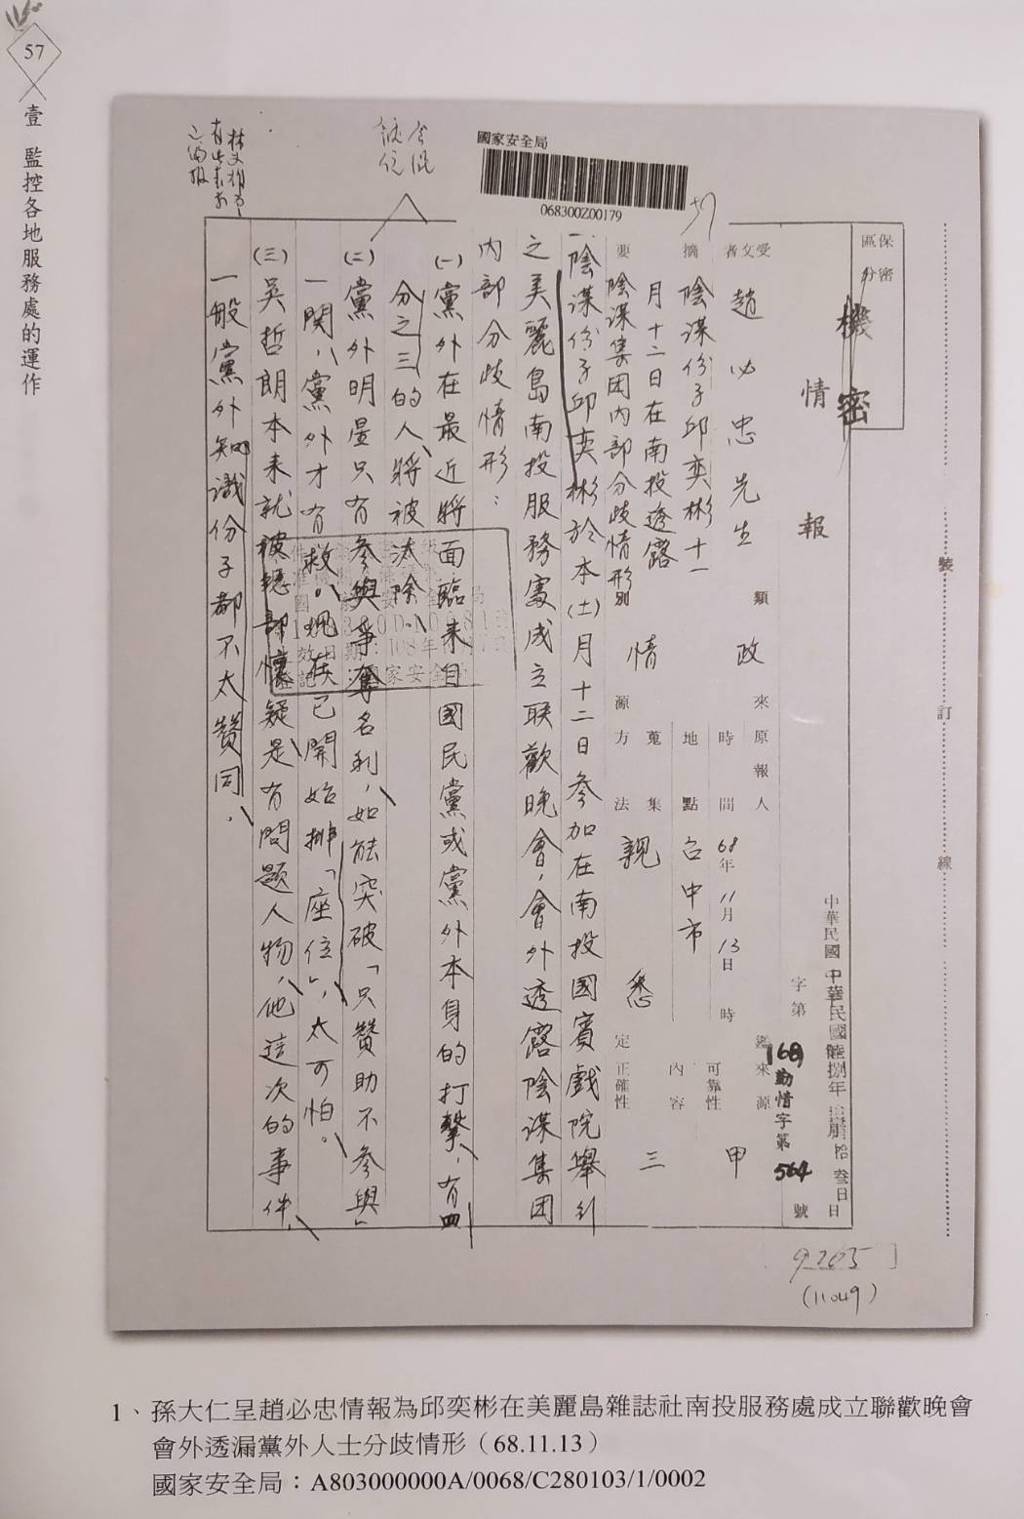 57
壹 監控各地服務處的運作
國家安全局
068300Z00179
57
保密區分
機密
情報
中華民國
中華民國陸捌年
拾叁日
字第
號
168勤情字第
564
受文者
趙必忠先生
類別
政情
來源
原報人
時間
68年11月13日 時
地點
台中市
蒐集方法
親悉
鑑定
來源可靠性
甲
內容正確性
三
摘要
陰謀份子邱奕彬十一
月十二日在南投透露
陰謀集团內部分歧情形
一陰謀份子邱奕彬於本(十一)月十二日參加在南投國賓戲院舉行
之美麗島南投服務處成立联歡晚會,會外透露陰謀集团
內部分歧情形:
(一)黨外在最近將面臨來自國民黨或黨外本身的打擊,有四
分之三的人將被汰除。
(二)黨外明星只有參與爭奪名利,如能突破「只贊助不參與」
一関,黨外才有救。現在已開始排「座位」,太可怕。
(三)吳哲朗本來就被總部懷疑是有問題人物,他這次的事件,
一般黨外知識份子都不太贊同。
裝
訂
線
9205
(11049)
1、孫大仁呈趙必忠情報為邱奕彬在美麗島雜誌社南投服務處成立聯歡晚會
會外透漏黨外人士分歧情形(68.11.13)
國家安全局:A803000000A/0068/C280103/1/0002